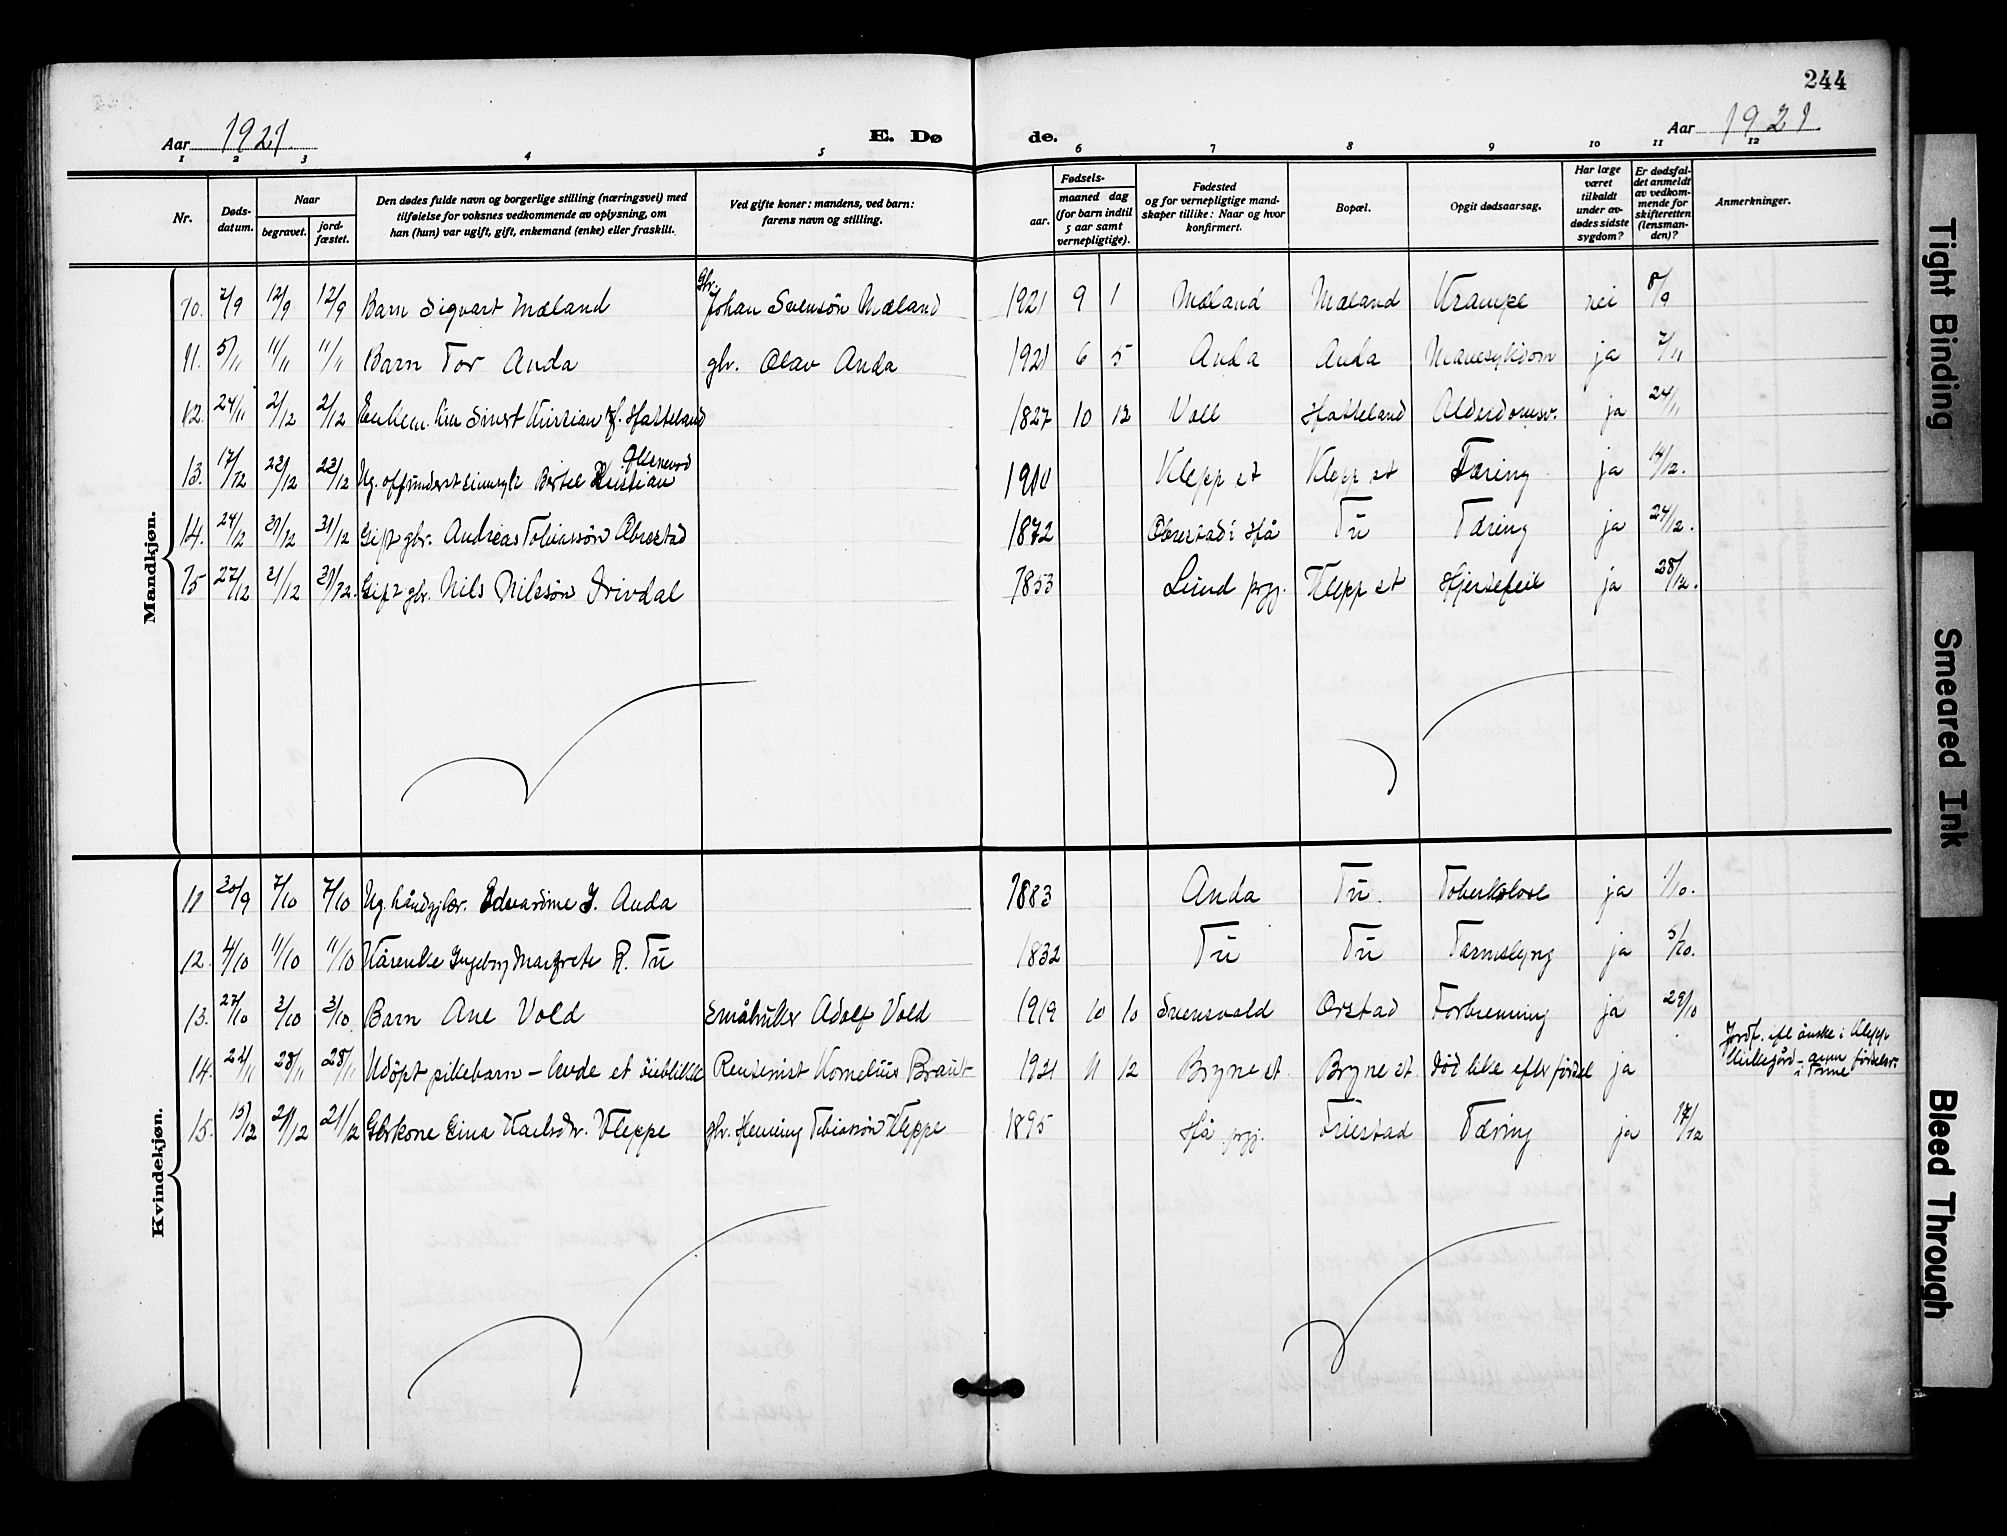 244
Aar 1921. E. Dø de. Aar 1921.
1 2 3 4 5 6 7 8 9 10 11 12
Nr.
Døds-
datum.
Naar
begravet.
jord-
fæstet.
Den dødes fulde navn og borgerlige stilling (næringsvei) med
tilføielse for voksnes vedkommende av oplysning, om
han (hun) var ugift, gift, enkemand (enke) eller fraskilt.
Ved gifte koner: mandens, ved barn:
farens navn og stilling.
Fødsels-
aar.
maaned dag
(for barn indtil
5 aar samt
vernepligtige).
Fødested
og for vernepligtige mand-
skaper tillike: Naar og hvor
konfirmert.
Bopæl.
Opgit dødsaarsag.
Har læge
været
tilkaldt
under av-
dødes sidste
sygdom?
Er dødsfal-
det anmeldt
av vedkom-
mende for
skifteretten
(lensman-
den)?
Anmerkninger.
Mandkjøn.
10. 2/9 12/9 12/9 Barn Sigvart Mæland Gbr. Johan Svensøn Mæland 1921 9 1 Mæland Mæland Krampe nei 8/9
11. 5/11 11/11 11/11 Barn Tor Anda gbr. Olav Anda 1921 6 5 Anda Anda Mavesykdom ja 7/11
12. 24/11 2/12 2/12 Sivert Kristian Hatteland 1827 10 12 Voll Hatteland Aldersdomsv. ja 24/11
13. 17/12 22/12 22/12 Ug. Bertel Kristian 1910 Klepp st Klepp st Tæring ja 14/12.
14. 24/12 31/12 31/12 Gift gbr. Andreas Tobiassøn Obrestad 1872 Obrestad i Hå Tu Tæring ja 24/12.
15 27/12 31/12 31/12. Gift gbr. Nils Nilssøn Drivdal 1853 Lund prgj. Klepp st Hjertefeil ja 28/12.
Kvindekjøn.
11 30/9 7/10 7/10 Ug. Edvardine J. Anda 1883 Anda Tu. Toberkolose ja 1/10.
12. 4/10 11/10 11/10 Kårenke Ingeborg Margrete R. Tu 1832 Tu Tu Tarmslyng ja 5/10.
13. 27/10 3/10 3/10. Barn Ane Vold Småbruker Adolf Vold 1919 10 10 Svensvold Orstad Forbrenning ja 29/10
14. 22/11 28/11 28/11 Udöpt pikebarn – levde et öieblikk Rentenist Kornelius Braut 1921 11 12 Bryne st. Bryne st. död like efter födsel ja
Jordf. eft. önske i Klepp
15. 15/12 21/12 21/12 Gbrkone Eina Karlsdtr. Kleppe gbr. Henning Tobiassön Kleppe 1895 Hå prgj. Friestad Tæring ja 17/12
Tight Binding
Smeared Ink
Bleed Through